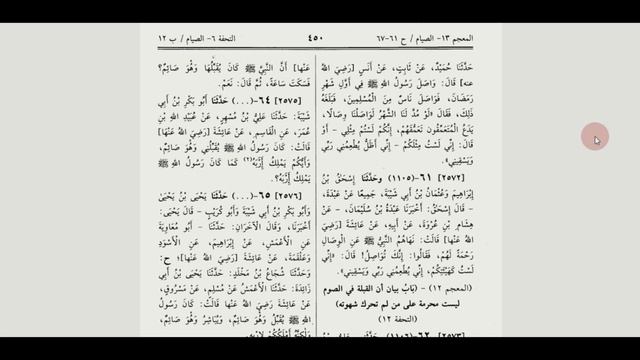 المعجم ١٣- الصيام / ح ٦١-٦٧
٤٥٠
التحفة ٦- الصيام / ب ١٢
حَدَّثَنَا حُمَيْدٌ، عَنْ ثَابِتٍ، عَنْ أَنَسٍ [رَضِيَ اللهُ
عنه] قَالَ: وَاصَلَ رَسُولُ اللهِ ﷺ فِي أَوَّلِ شَهْرِ
رَمَضَانَ، فَوَاصَلَ نَاسٌ مِنَ الْمُسْلِمِينَ، فَبَلَغَهُ
ذٰلِكَ، فَقَالَ «لَوْ مُدَّ لَنَا الشَّهْرُ لَوَاصَلْنَا وِصَالًا،
يَدَعُ الْمُتَعَمِّقُونَ تَعَمُّقَهُمْ، إِنَّكُمْ لَسْتُمْ مِثْلِي - أَوْ
قَالَ: إِنِّي لَسْتُ مِثْلَكُمْ - إِنِّي أَظَلُّ يُطْعِمُنِي رَبِّي
وَيَسْقِينِي».
[٢٥٧٢] ٦١-(١١٠٥) وحَدَّثَنَا إِسْحٰقُ بْنُ
إِبْرَاهِيمَ وَعُثْمَانُ بْنُ أَبِي شَيْبَةَ، جَمِيعًا عَنْ عَبْدَةَ،
- قَالَ إِسْحٰقُ: أَخْبَرَنَا عَبْدَةُ بْنُ سُلَيْمَانَ، - عَنْ
هِشَامِ بْنِ عُرْوَةَ، عَنْ أَبِيهِ، عَنْ عَائِشَةَ [رَضِيَ
اللهُ عَنْهَا] قَالَتْ: نَهَاهُمُ النَّبِيُّ ﷺ عَنِ الْوِصَالِ
رَحْمَةً لَهُمْ، فَقَالُوا: إِنَّكَ تُوَاصِلُ! قَالَ: «إِنِّي
لَسْتُ كَهَيْئَتِكُمْ، إِنِّي يُطْعِمُنِي رَبِّي وَيَسْقِينِي».
(المعجم ١٢) - (بَابُ بيان أن القبلة في الصوم
ليست محرمة على من لم تحرك شهوته)
(التحفة ١٢)
[٢٥٧٣] ٦٢-(١١٠٦)
عَنْهَا] أَنَّ النَّبِيَّ ﷺ كَانَ يُقَبِّلُهَا وَهُوَ صَائِمٌ؟
فَسَكَتَ سَاعَةً، ثُمَّ قَالَ: نَعَمْ.
[٢٥٧٥] ٦٤-(...) حَدَّثَنَا أَبُو بَكْرِ بْنُ أَبِي
شَيْبَةَ: حَدَّثَنَا عَلِيُّ بْنُ مُسْهِرٍ، عَنْ عُبَيْدِ اللهِ بْنِ
عُمَرَ، عَنِ الْقَاسِمِ، عَنْ عَائِشَةَ [رَضِيَ اللهُ عَنْهَا]
قَالَتْ: كَانَ رَسُولُ اللهِ ﷺ يُقَبِّلُنِي وَهُوَ صَائِمٌ،
وَأَيُّكُمْ يَمْلِكُ إِرْبَهُ(٢) كَمَا كَانَ رَسُولُ اللهِ ﷺ
يَمْلِكُ إِرْبَهُ؟.
[٢٥٧٦] ٦٥-(...) حَدَّثَنَا يَحْيَى بْنُ يَحْيَىٰ
وَأَبُو بَكْرِ بْنُ أَبِي شَيْبَةَ وَأَبُو كُرَيْبٍ - قَالَ يَحْيَىٰ:
أَخْبَرَنَا، وَقَالَ الْآخَرَانِ: حَدَّثَنَا - أَبُو مُعَاوِيَةَ
عَنِ الْأَعْمَشِ، عَنْ إِبْرَاهِيمَ، عَنِ الْأَسْوَدِ
وَعَلْقَمَةَ، عَنْ عَائِشَةَ [رَضِيَ اللهُ عَنْهَا]؛ ح:
وَحَدَّثَنَا شُجَاعُ بْنُ مَخْلَدٍ: حَدَّثَنَا يَحْيَى بْنُ أَبِي
زَائِدَةَ: حَدَّثَنَا الْأَعْمَشُ عَنْ مُسْلِمٍ، عَنْ مَسْرُوقٍ،
عَنْ عَائِشَةَ رَضِيَ اللهُ عَنْهَا قَالَتْ: كَانَ رَسُولُ
اللهِ ﷺ يُقَبِّلُ وَهُوَ صَائِمٌ، وَيُبَاشِرُ وَهُوَ صَائِمٌ،
وَلٰكِنَّهُ أَمْلَكُكُمْ لِإِرْبِهِ.